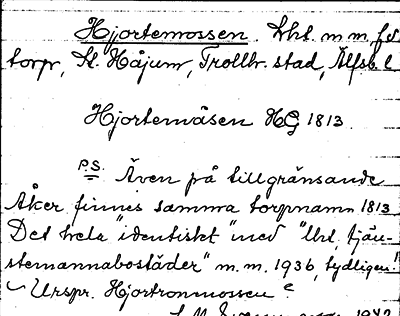 Hjortemossen. Lht. m.m., f.d.
torp, St. Håjum, Trollh. stad, Älfsb. l
Hjortemåsen HG 1813.
P.S. Även på tillgränsande
Åker finnes samma torpnamn 1813
Det hela "identiskt" med "lht. tjän-
stemannabostäder" m.m. 1936, tydligen!
Urspr. Hjortronmossen?